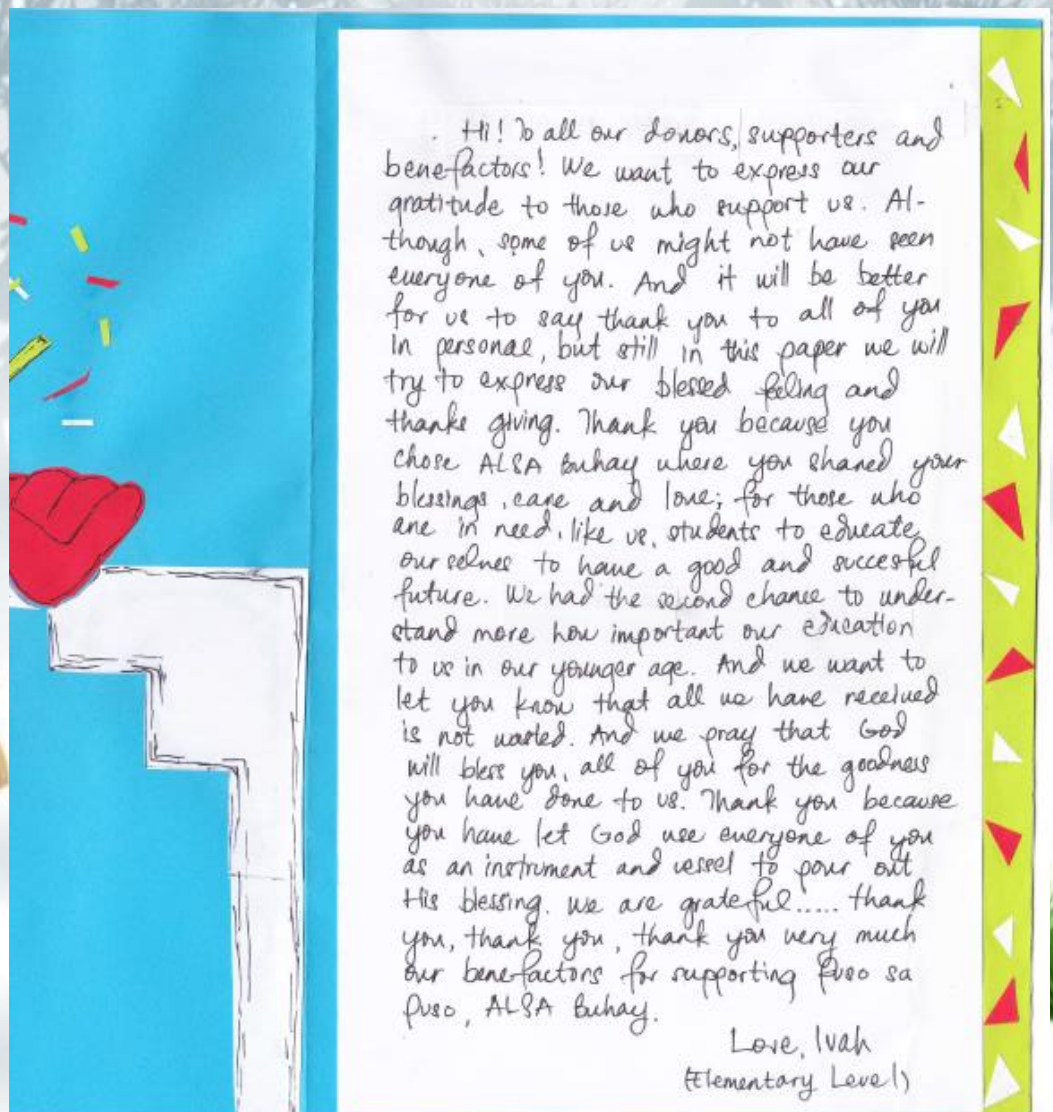 Hi! To all our donors, supporters and
benefactors! We want to express our
gratitude to those who support us. Al-
though, some of us might not have seen
everyone of you. And it will be better
for us to say thank you to all of you
in personal, but still in this paper we will
try to express our blessed feeling and
thanks giving. Thank you because you
chose ALSA Buhay where you shared your
blessings, care and love; for those who
are in need, like us, students to educate
ourselves to have a good and succesful
future. We had the second chance to under-
stand more how important our education
to us in our younger age. And we want to
let you know that all we have received
is not wasted. And we pray that God
will bless you, all of you for the goodness
you have done to us. Thank you because
you have let God use everyone of you
as an instrument and vessel to pour out
His blessing. We are grateful..... thank
you, thank you, thank you very much
our benefactors for supporting Puso sa
Puso, ALSA Buhay.
Love, Ivah
(Elementary Level)